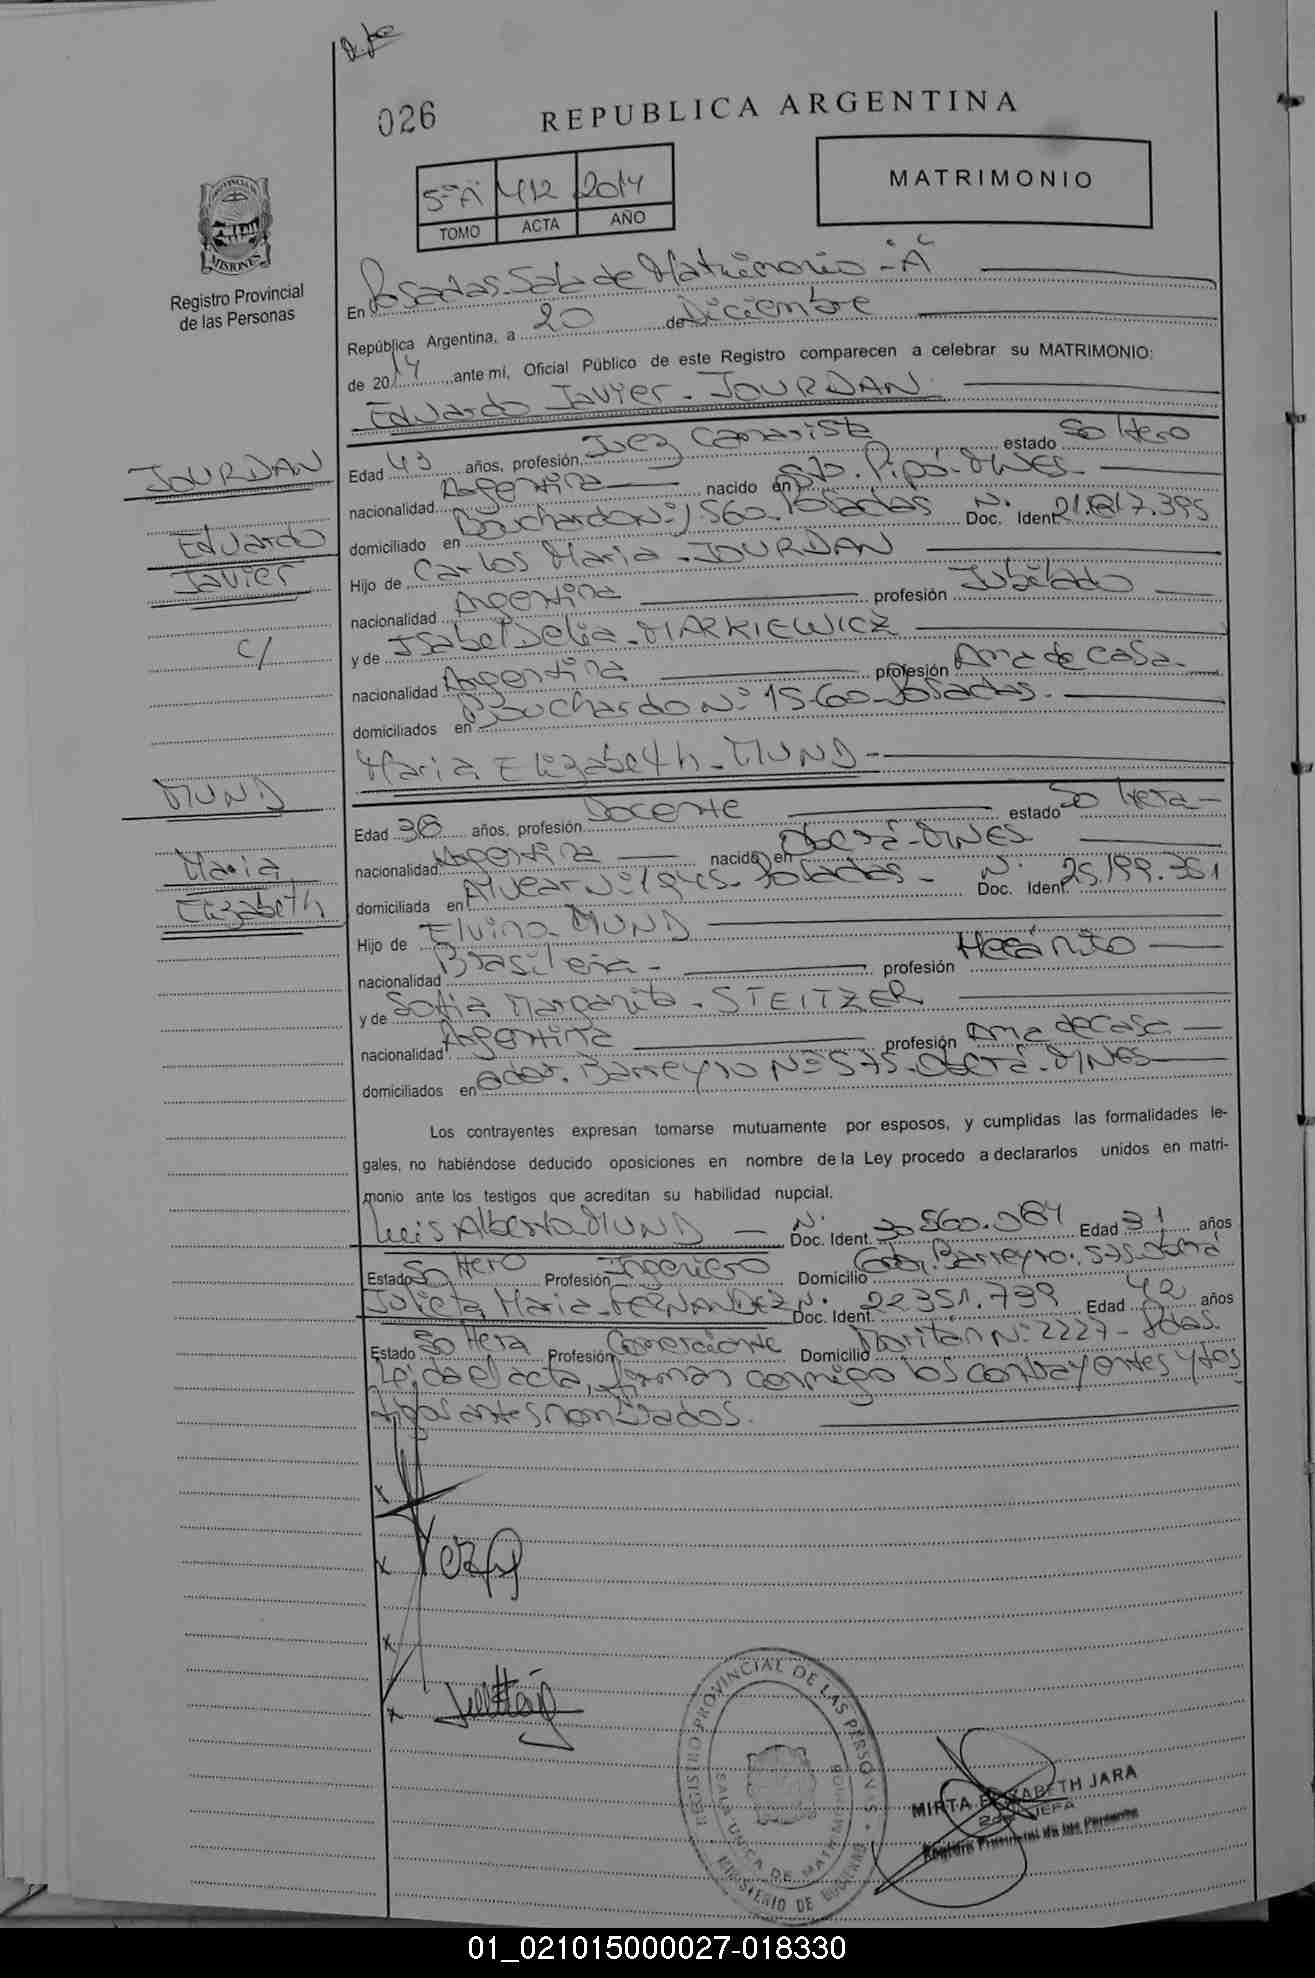 026
REPUBLICA ARGENTINA
5º"A" 412 2014
TOMO ACTA AÑO
MATRIMONIO
MISIONES
Registro Provincial
de las Personas
En Posadas-Sala de Matrimonio-"A"
República Argentina, a 20 de Diciembre
de 2014, ante mí, Oficial Público de este Registro comparecen a celebrar su MATRIMONIO:
Eduardo Javier-JOURDAN
JOURDAN
Eduardo
Javier
c/
MUND
Maria
Elizabeth
Edad 43 años, profesión, Juez Camarista estado Soltero
nacionalidad Argentina nacido en Sto. Pipó-MNES-
domiciliado en Bouchardo Nº 1560-Posadas Doc. Ident. Nº 21.817.395
Hijo de Carlos Maria-JOURDAN
nacionalidad Argentina profesión Jubilado
y de Isabel Delia-MARKIEWICZ
nacionalidad Argentina profesión Ama de casa-
domiciliados en Bouchardo Nº 1560-Posadas-
Maria Elizabeth-MUND-
Edad 38 años, profesión Docente estado Soltera-
nacionalidad Argentina nacida en Oberá-MNES
domiciliada en Alvear Nº 1945-Posadas- Doc. Ident. Nº 25.199.351
Hijo de Elvino MUND
nacionalidad Brasileña- profesión Mecánico
y de Sofia Margarita-STEITZER
nacionalidad Argentina profesión Ama de casa
domiciliados en Gdor. Barreyro Nº 575-Oberá-MNES
Los contrayentes expresan tomarse mutuamente por esposos, y cumplidas las formalidades le-
gales, no habiéndose deducido oposiciones en nombre de la Ley procedo a declararlos unidos en matri-
monio ante los testigos que acreditan su habilidad nupcial.
Luis Alberto MUND - Doc. Ident. Nº 30.560.064 Edad 31 años
Estado Soltero Profesión Ingeniero Domicilio Gdor. Barreyro. 575. Oberá
Julieta Maria-FERNANDEZ Doc. Ident. Nº 22351.739 Edad 42 años
Estado Soltera Profesión Comerciante Domicilio Nº 2227-Pdas.
Leida el acta, firman conmigo los contrayentes y tes
tigos antes nombrados.
REGISTRO PROVINCIAL DE LAS PERSONAS
SALA UNICA DE MATRIMONIO
MINISTERIO DE GOBIERNO
MIRTA ELIZABETH JARA
2da. JEFA
Registro Provincial de las Personas
01_021015000027-018330